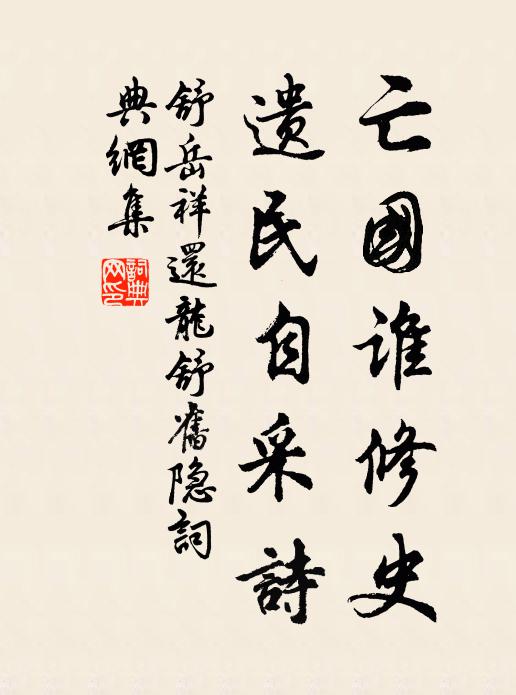 亡國誰修史
遺民自采詩
舒岳祥還龍舒舊隐詞
典網集
詞典网印